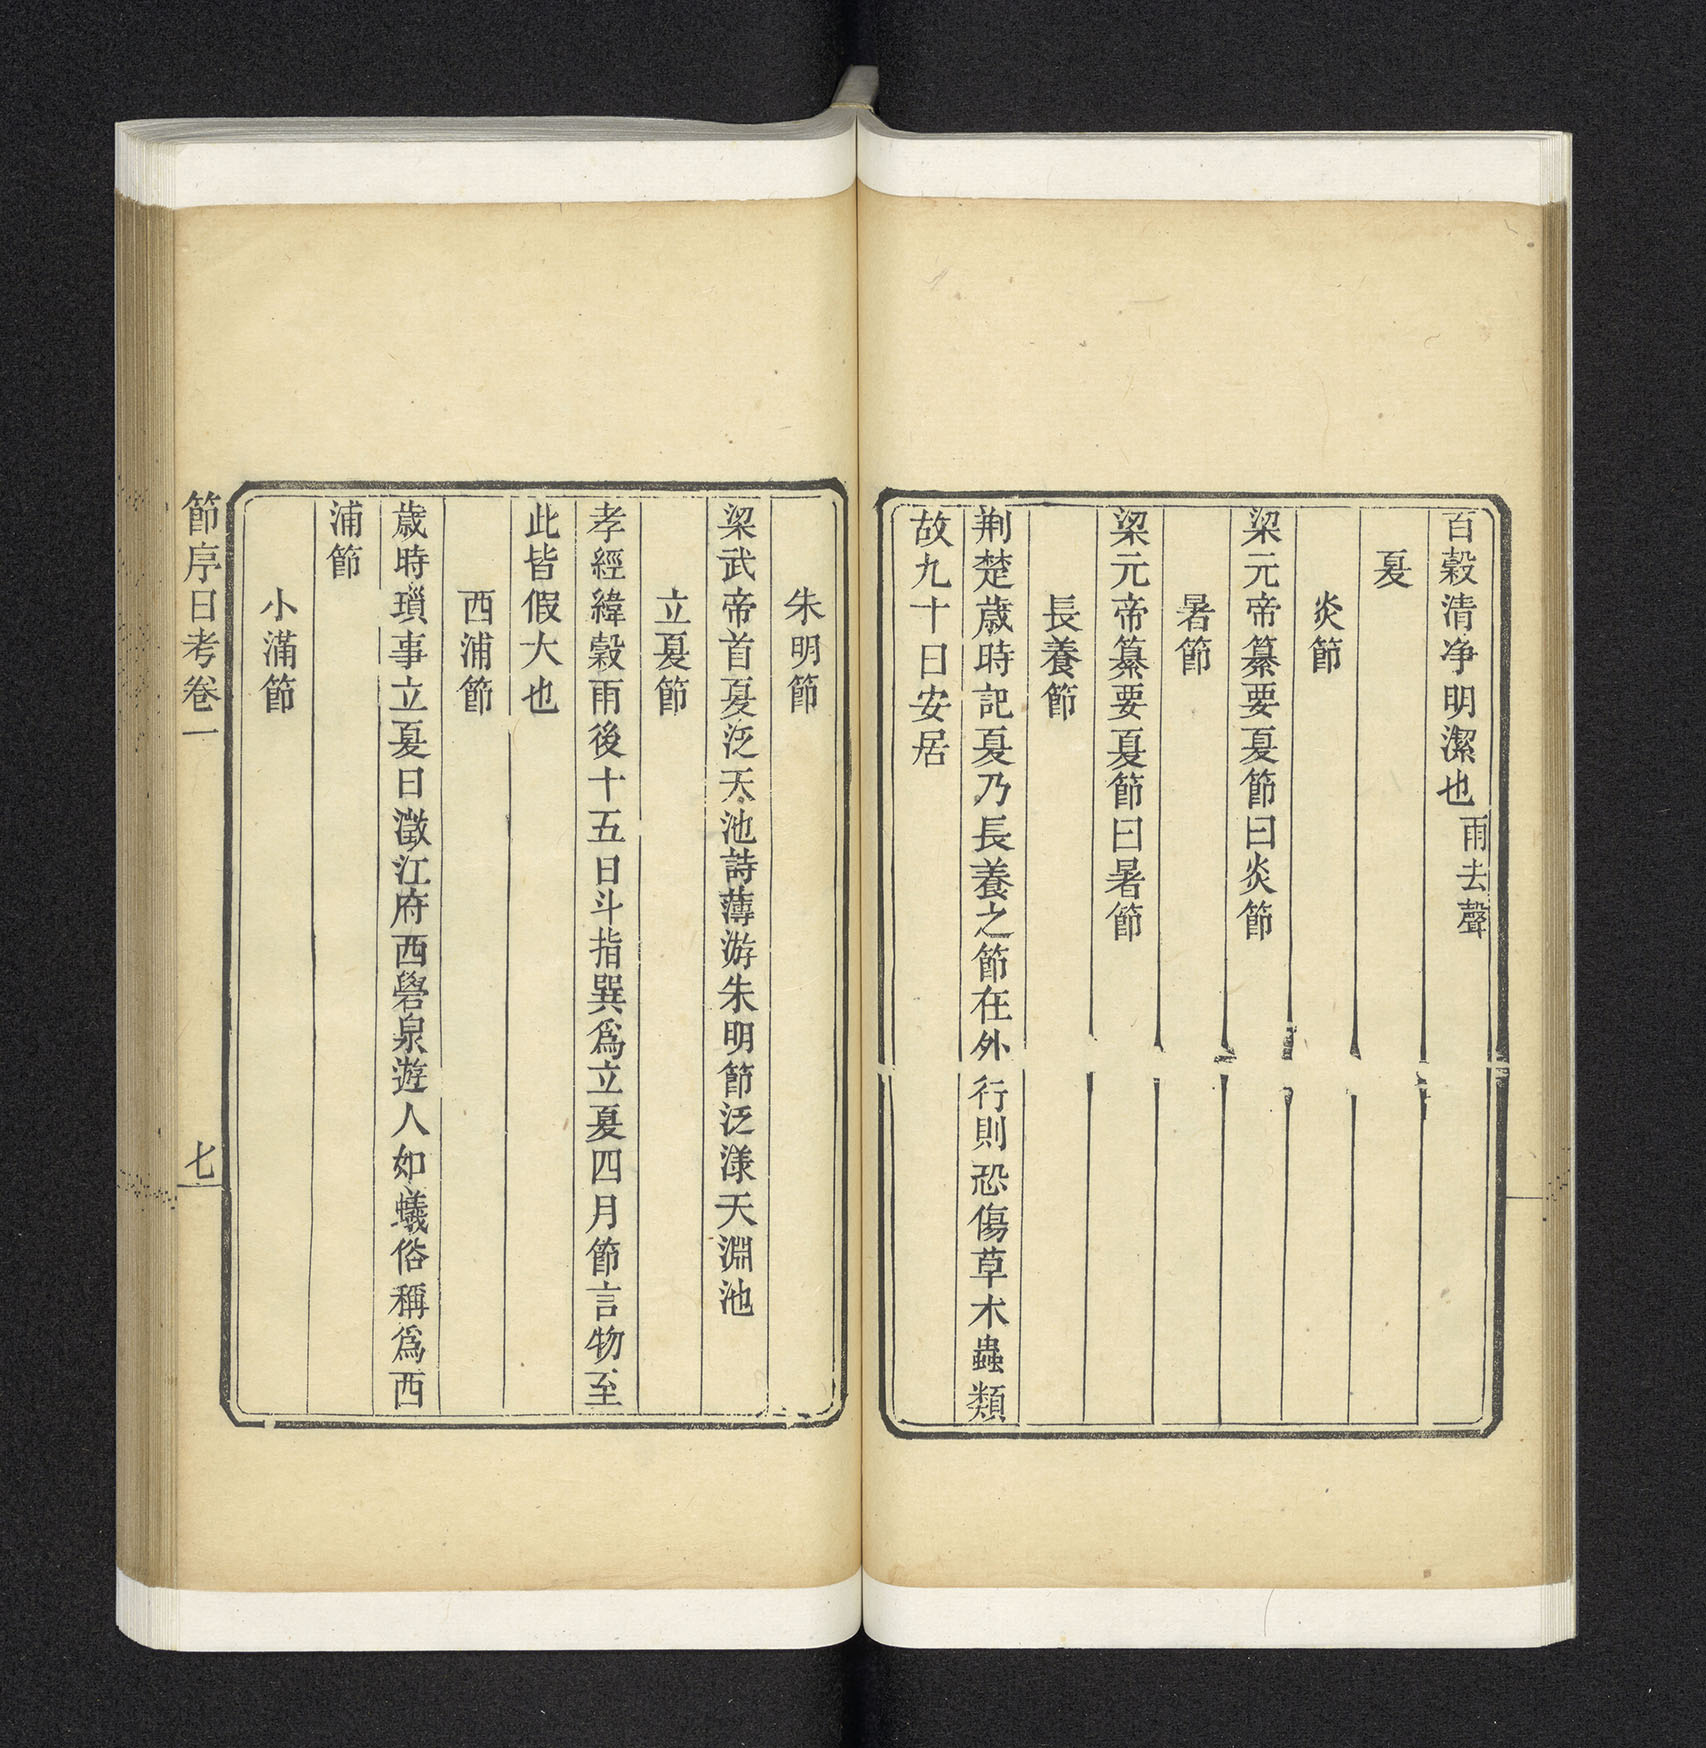 百穀清净明潔也雨去聲
夏
炎節
梁元帝纂要夏節曰炎節
暑節
梁元帝纂要夏節曰暑節
長養節
荆楚歲時記夏乃長養之節在外行則恐傷草木蟲類
故九十日安居
朱明節
梁武帝首夏泛天池詩薄游朱明節泛漾天淵池
立夏節
孝經緯穀雨後十五日斗指巽爲立夏四月節言物至
此皆假大也
西浦節
歲時瑣事立夏日澂江府西礐泉遊人如蟻俗稱爲西
浦節
小滿節
節序日考卷一
七